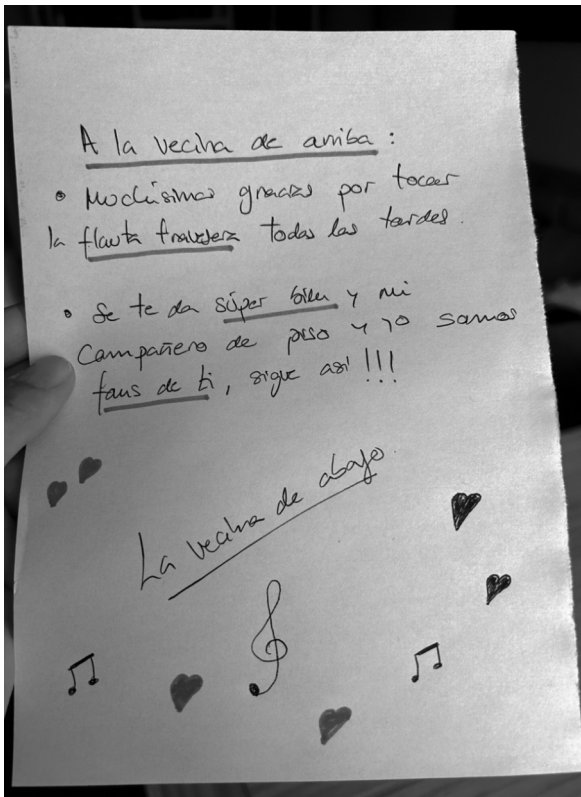 A la vecina de arriba :
• Muchísimas gracias por tocar
la flauta travesera todas las tardes.
• Se te da súper bien y mi
compañero de piso y yo somos
fans de ti, sigue así !!!
La vecina de abajo